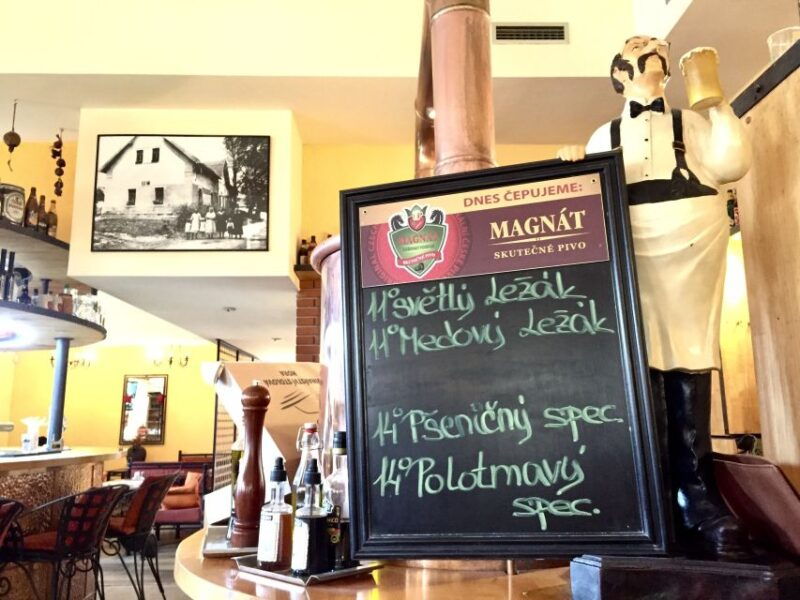 DNES ČEPUJEME:
MAGNÁT
SKUTEČNÉ PIVO
MAGNÁT
SKUTEČNÉ PIVO
11° světlý Ležák
11° Medový Ležák
14° Pšeničný spec.
14° Polotmavý
spec.